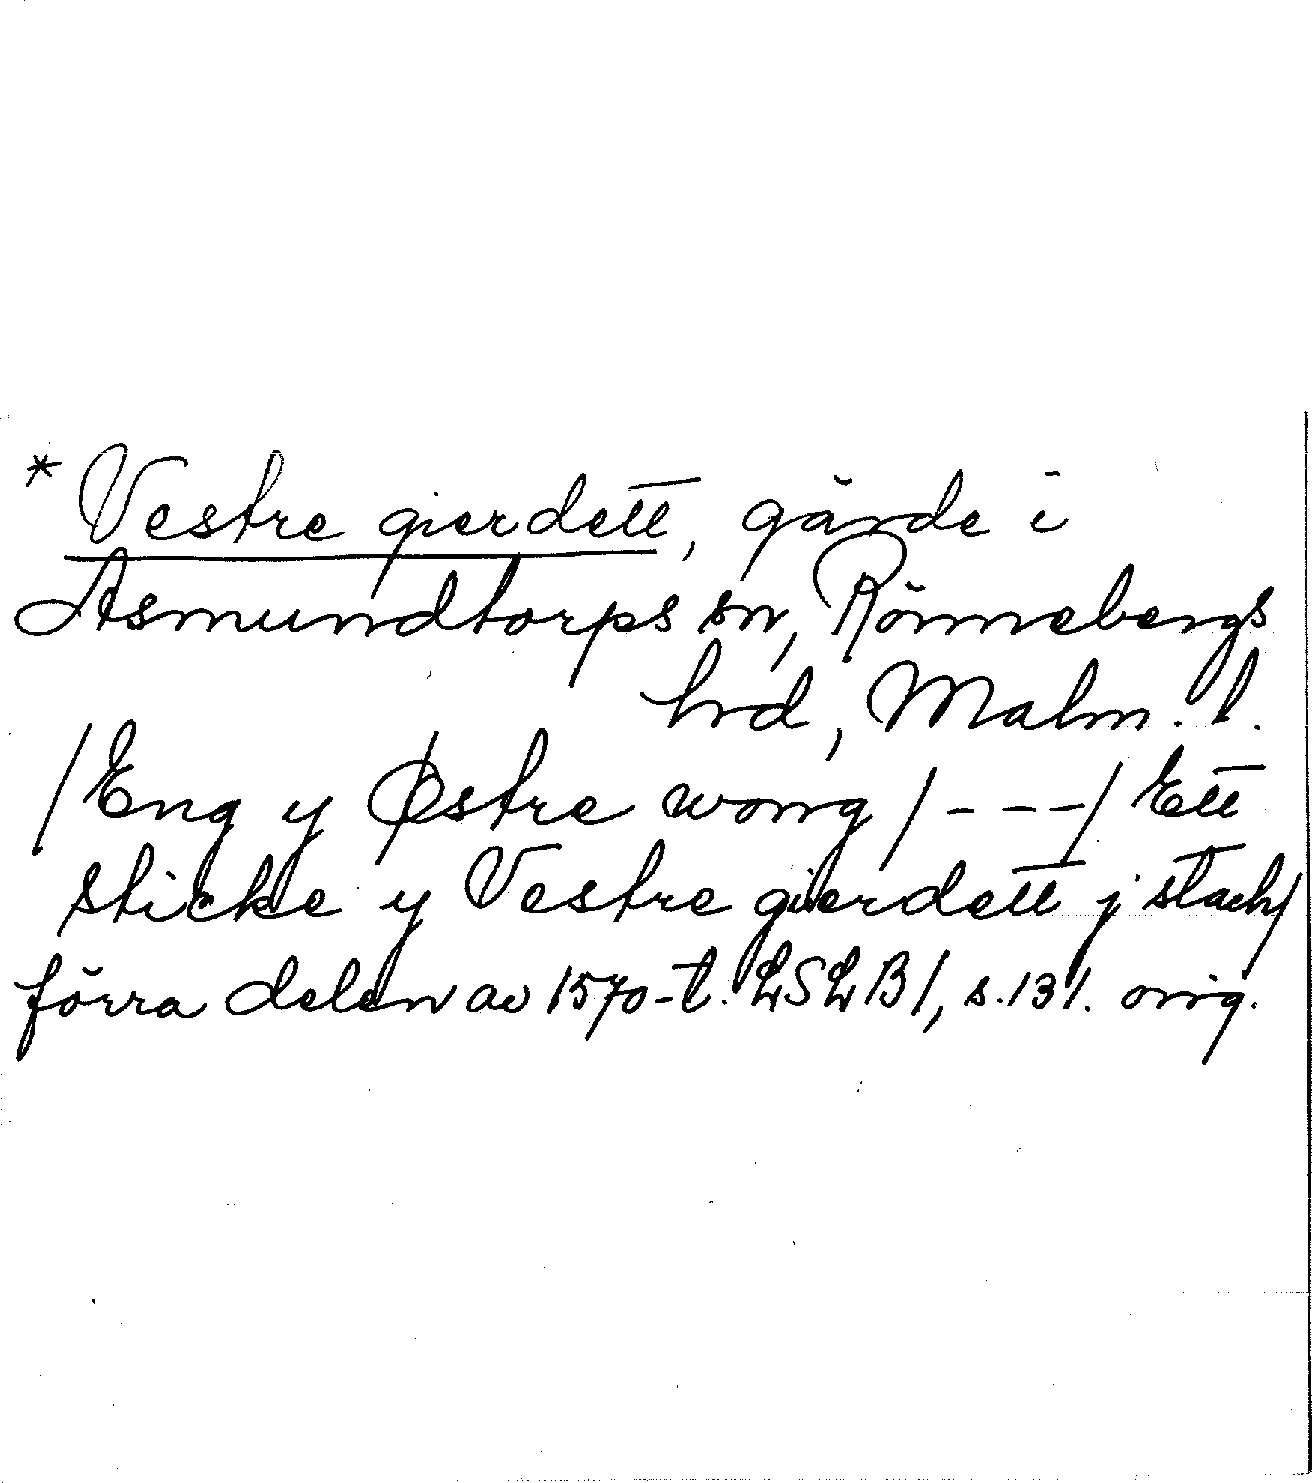 * Vestre gierdett, gärde i
Asmundtorps sn, Rönnebergs
hrd, Malm. l.
/Eng y Østre wong/---/Ett
sticke y Vestre gierdett j stach/
förra delen av 1570-t. LSLB1, s.131. orig.